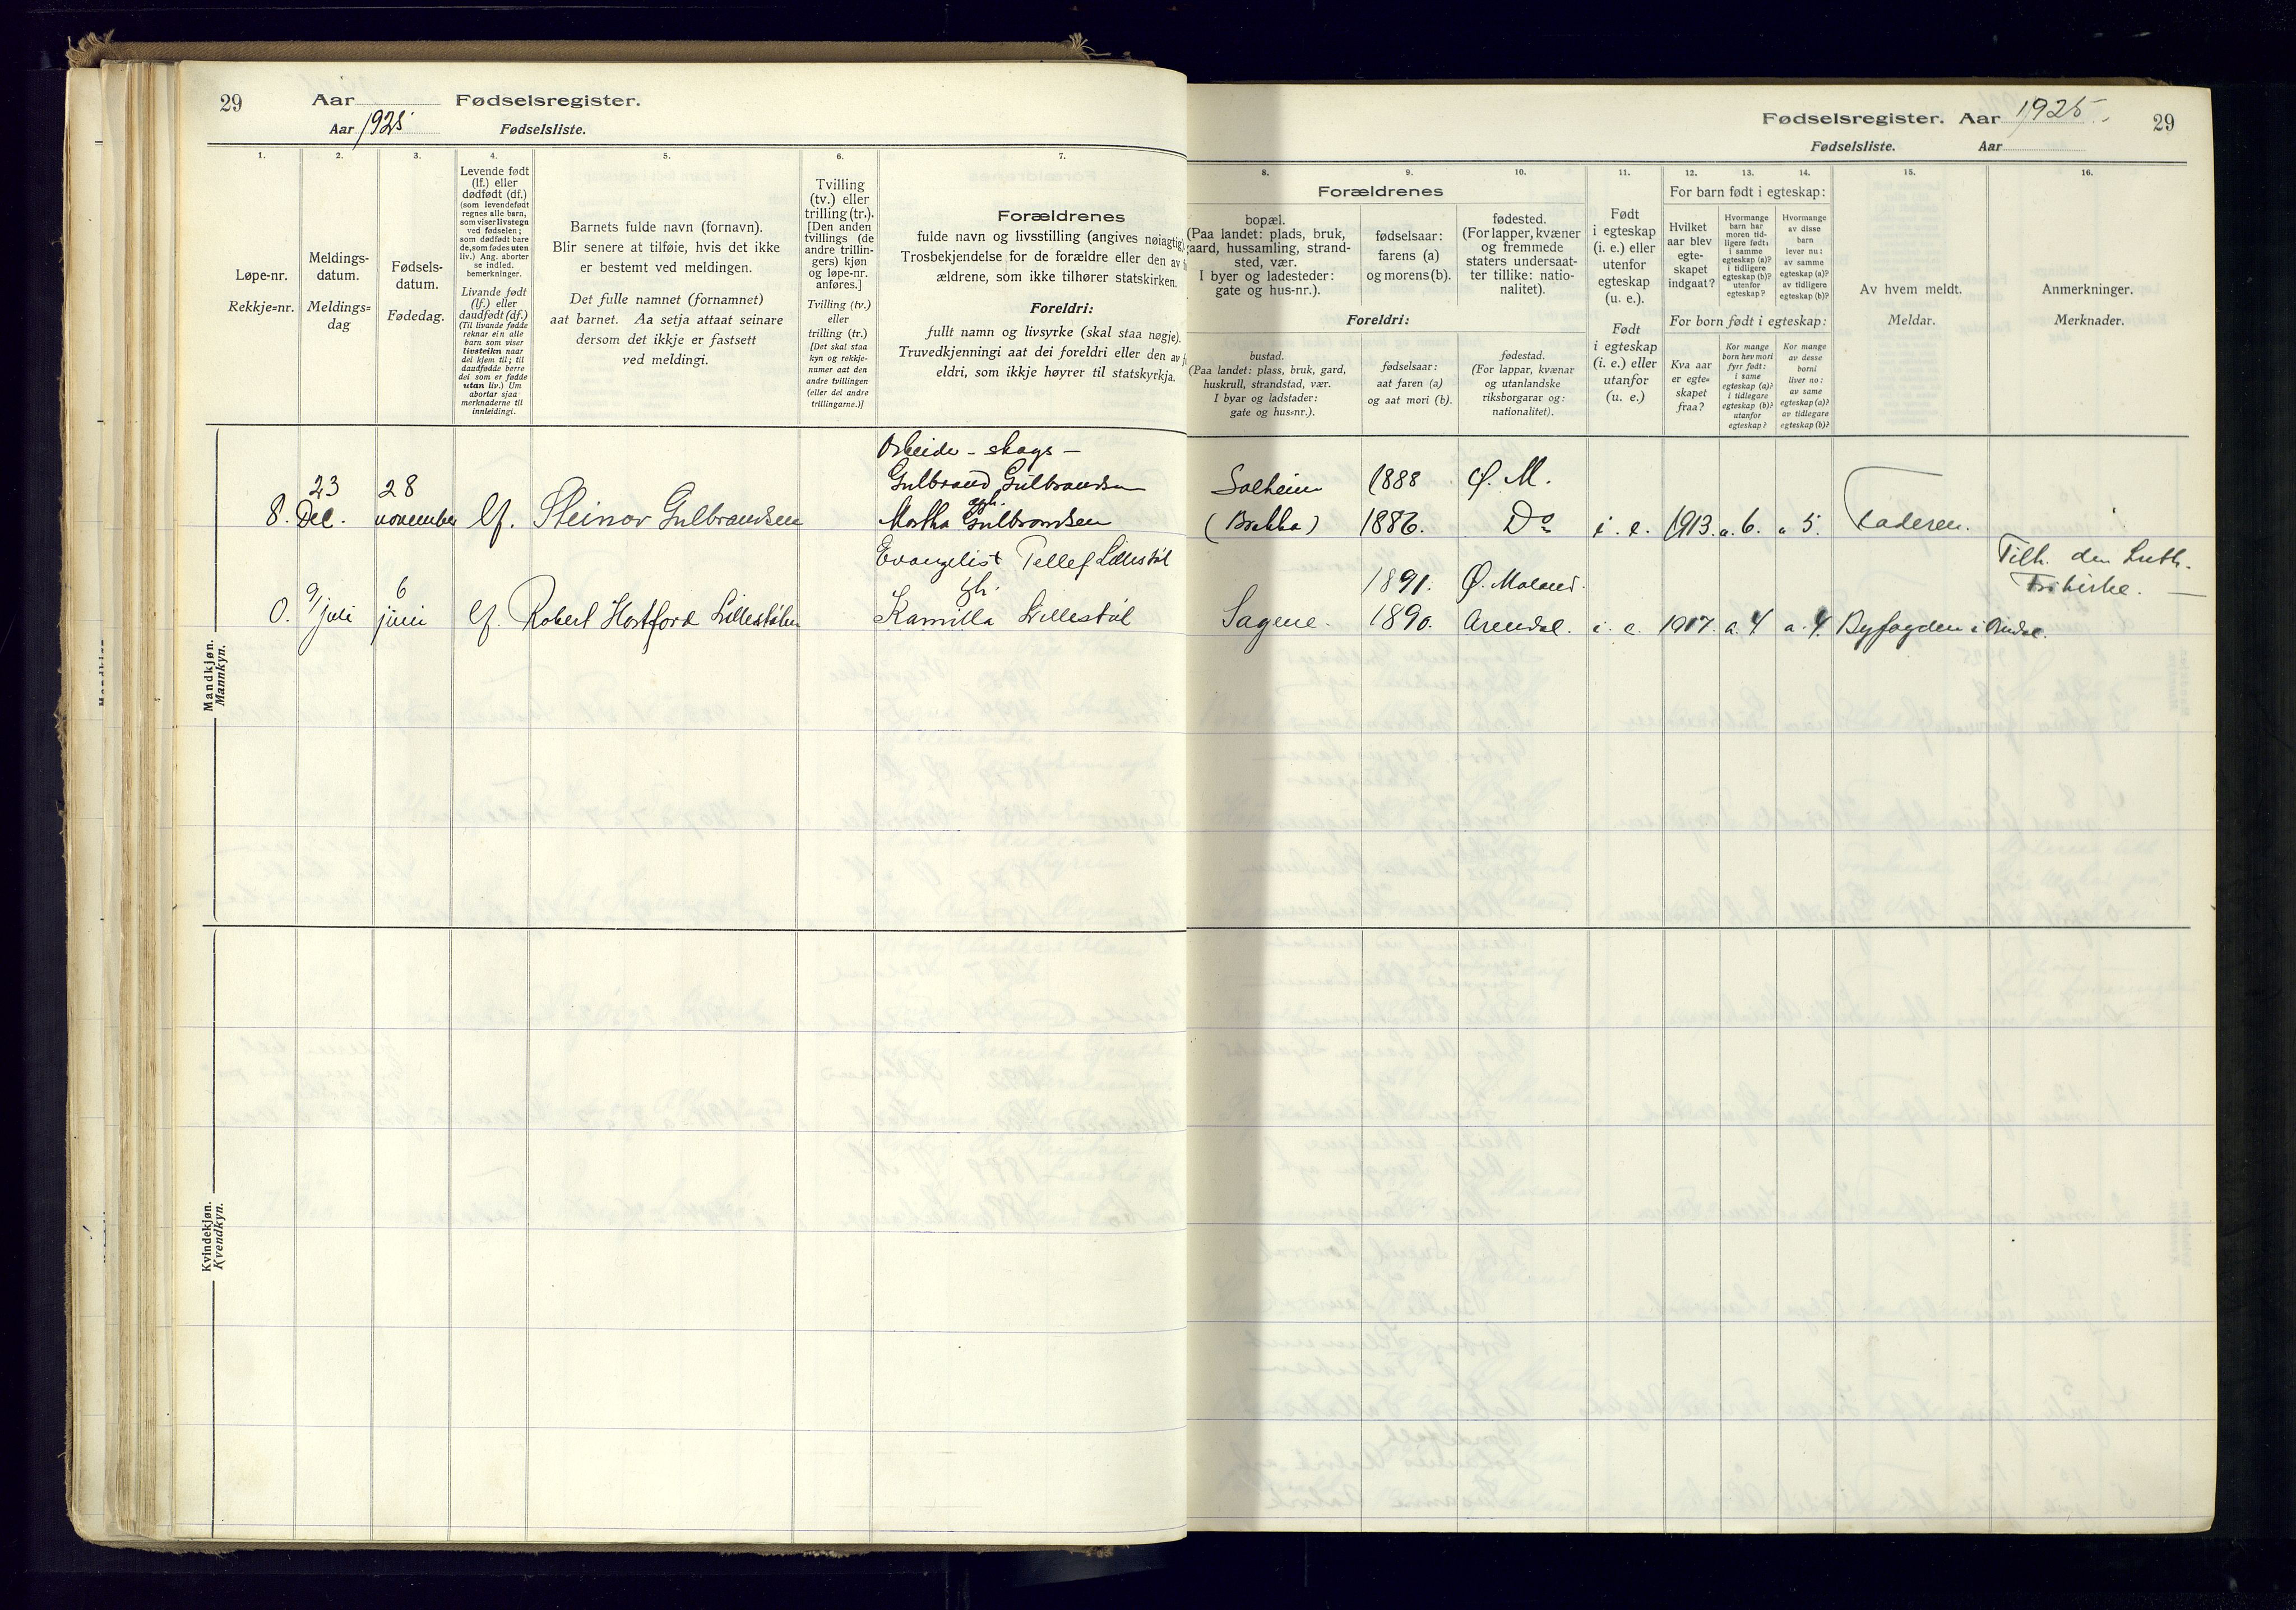 29
Aar Fødselsregister.
Aar 1925 Fødselsliste.
1.
Løpe-nr.
Rekkje-nr.
2.
Meldings-
datum.
Meldings-
dag
3.
Fødsels-
datum.
Fødedag.
4.
Levende født
(lf.) eller
dødfødt (df.)
(som levendefødt
regnes alle barn,
som viser livstegn
ved fødselen;
som dødfødt bare
de, som fødes uten
liv.) Ang. aborter
se indled.
bemerkninger.
Livande født
(lf.) eller
daudfødt (df.)
(Til livande fødde
reknar ein alle
barn som viser
livsteikn naar
dei kjem til; til
daudfødde berre
dei som er fødde
utan liv.) Um
abortar sjaa
merknaderne til
innleidingi.
5.
Barnets fulde navn (fornavn).
Blir senere at tilføie, hvis det ikke
er bestemt ved meldingen.
Det fulle namnet (fornamnet)
aat barnet. Aa setja attaat seinare
dersom det ikkje er fastsett
ved meldingi.
6.
Tvilling
(tv.) eller
trilling (tr.).
[Den anden
tvillings (de
andre trillin-
gers) kjøn
og løpe-nr.
anføres.]
Tvilling (tv.)
eller
trilling (tr.)
[Det skal staa
kyn og rekkje-
numer aat den
andre tvillingen
(eller dei andre
trillingarne.)]
7.
Forældrenes
fulde navn og livsstilling (angives nøiagtig)
Trosbekjendelse for de forældre eller den av
ældrene, som ikke tilhører statskirken.
Foreldri:
fullt namn og livsyrke (skal staa nøgje).
Truvedkjenningi aat dei foreldri eller den av
eldri, som ikkje høyrer til statskyrkja.
Mandkjøn.
Mannkyn.
Arbeider - skogs -
23 28 Gulbrand Gulbrandsen
8. Dec. november lf. Steinar Gulbrandsen Martha Gulbrandsen
Evangelist Tellef Lillestøl
9/ 6
0. juli juni lf. Robert Hostford Lillestølen Kamilla Lillestøl
Kvindekjøn.
Kvendkyn.
Fødselsregister. Aar 1925.
29
Fødselsliste. Aar
Forældrenes
8.
bopæl.
(Paa landet: plads, bruk,
gaard, hussamling, strand-
sted, vær.
I byer og ladesteder:
gate og hus-nr.).
9.
fødselsaar:
farens (a)
og morens (b).
10.
fødested.
(For lapper, kvæner
og fremmede
staters undersaat-
ter tillike: natio-
nalitet).
Foreldri:
bustad.
(Paa landet: plass, bruk, gard,
huskrull, strandstad, vær.
I byar og ladstader:
gate og hus-nr.).
fødselsaar:
aat faren (a)
og aat mori (b).
fødestad.
(For lappar, kvænar
og utanlandske
riksborgarar og:
nationalitet).
11.
Født
i egteskap
(i. e.) eller
utenfor
egteskap
(u. e.).
Født
i egteskap
(i. e.) eller
utanfor
(u. e.)
For barn født i egteskap:
12.
Hvilket
aar blev
egte-
skapet
indgaat?
13.
Hvormange
barn har
moren tid-
ligere født:
i samme
egteskap (a)?
i tidligere
egteskap (b)?
utenfor
egteskap?
14.
Hvormange
av disse
barn
lever nu:
av samme
egteskap (a)?
av tidligere
egteskap (b)?
For born født i egteskap:
Kva aar
er egte-
skapet
fraa?
Kor mange
born hev mori
fyrr født:
i same
egteskap (a)?
i tidlegare
egteskap (b)?
utanfor
egteskap?
Kor mange
av desse
borni
liver no:
av same
egteskap (a)?
av tidlegare
egteskap (b)?
15.
Av hvem meldt.
Meldar.
16.
Anmerkninger.
Merknader.
Solheim 1888 Ø. M.
(Brekka) 1886. Do i. e. 1913. a. 6. a 5. Faderen.
Tilh. den Luth.
1891. Ø. Moland. Frikirke. —
Sagene. 1890. Arendal. i. e. 1917. a. 4 a. 4. Byfogden i Arndal.